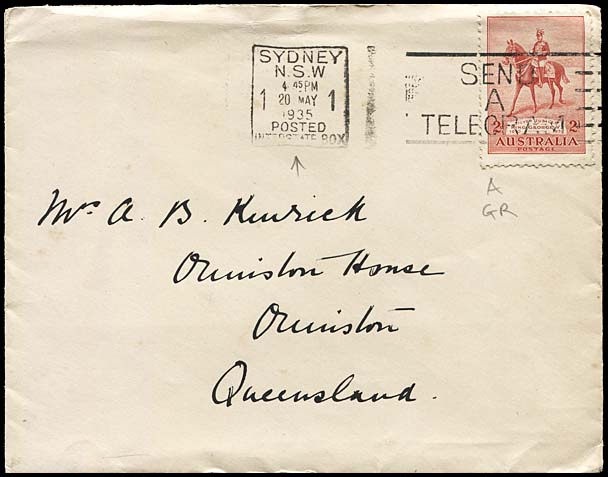 SYDNEY
N.S.W
4 45PM
1 20 MAY 1
1935
POSTED
INTERSTATE BOX
SEND
A
TELEGRAM
2d 2d
AUSTRALIA
POSTAGE
A
GR
Mrs A. B. Kenrick
Ormiston House
Ormiston
Queensland.